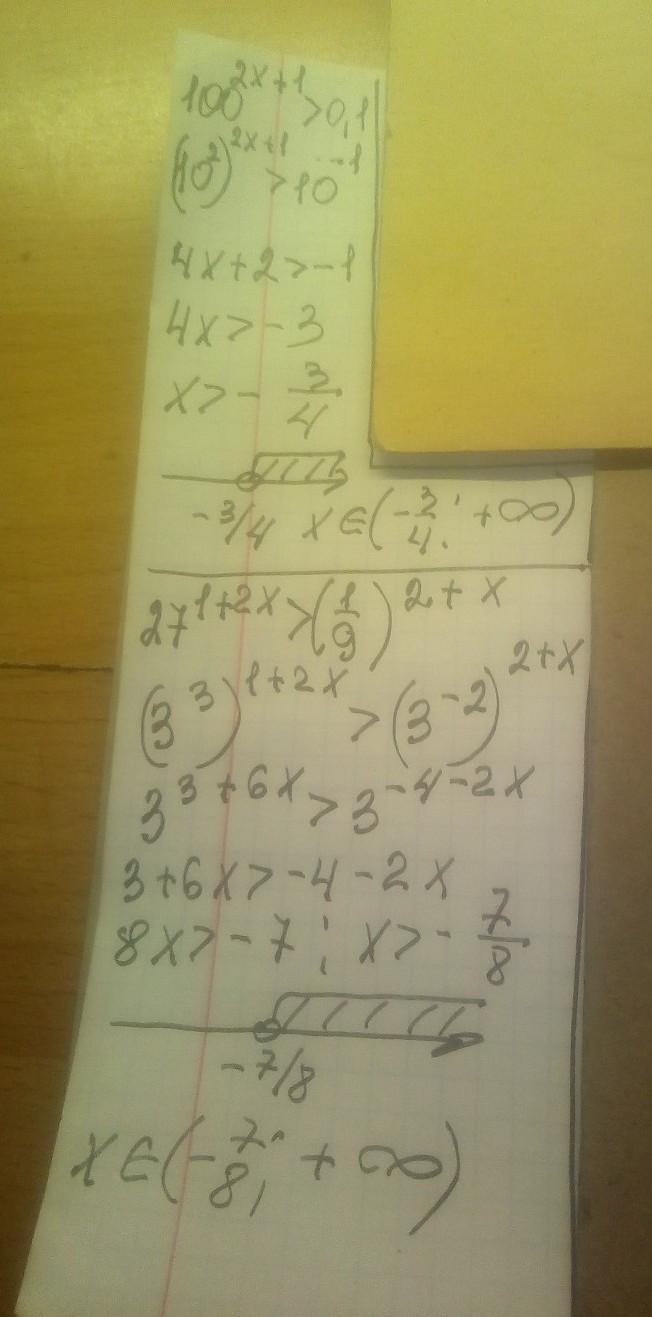 100^{2x+1} > 0,1
(10^2)^{2x+1} > 10^{-1}
4x+2 > -1
4x > -3
x > - \frac{3}{4}
-3/4 x ∈ (-\frac{3}{4}; +∞)
27^{1+2x} > (\frac{1}{9})^{2+x}
(3^3)^{1+2x} > (3^{-2})^{2+x}
3^{3+6x} > 3^{-4-2x}
3+6x > -4-2x
8x > -7; x > - \frac{7}{8}
-7/8
x ∈ (-\frac{7}{8}; +∞)